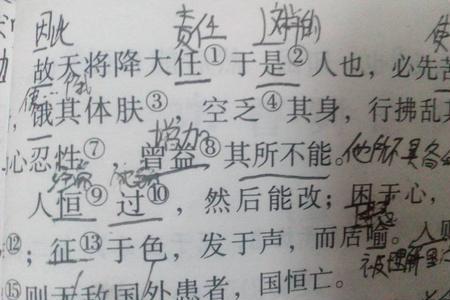 因此 责任 这样的 使
故天将降大任①于是②人也，必先苦
，饿其体肤③ 空乏④其身，行拂乱其
增加
心忍性⑦，曾益⑧其所不能。他所不具备
人恒⑨过⑩，然后能改；困于心，
⑫；征⑬于色，发于声，而后喻。人则
被理解
⑮则无敌国外患者，国恒亡。